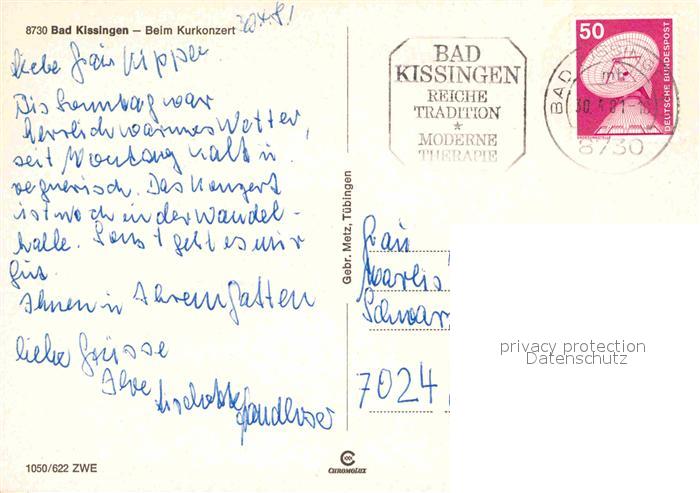 8730 Bad Kissingen – Beim Kurkonzert
30.4.81
Liebe Frau Kipper.
Bis Sonntag war
herrlich warmes Wetter,
seit Montag kalt u.
regnerisch. Das Konzert
ist noch in der Wandel-
halle. Sonst geht es mir
gut.
Ihnen u Ihrem Gatten
liebe Grüsse
Ihre
BAD
KISSINGEN
REICHE
TRADITION
*
MODERNE
THERAPIE
BAD
30.4.81
8730
50
DEUTSCHE BUNDESPOST
Gebr. Metz, Tübingen
Frau
Marlis
Schwar
7024
privacy protection
Datenschutz
1050/622 ZWE
CHROMOLUX